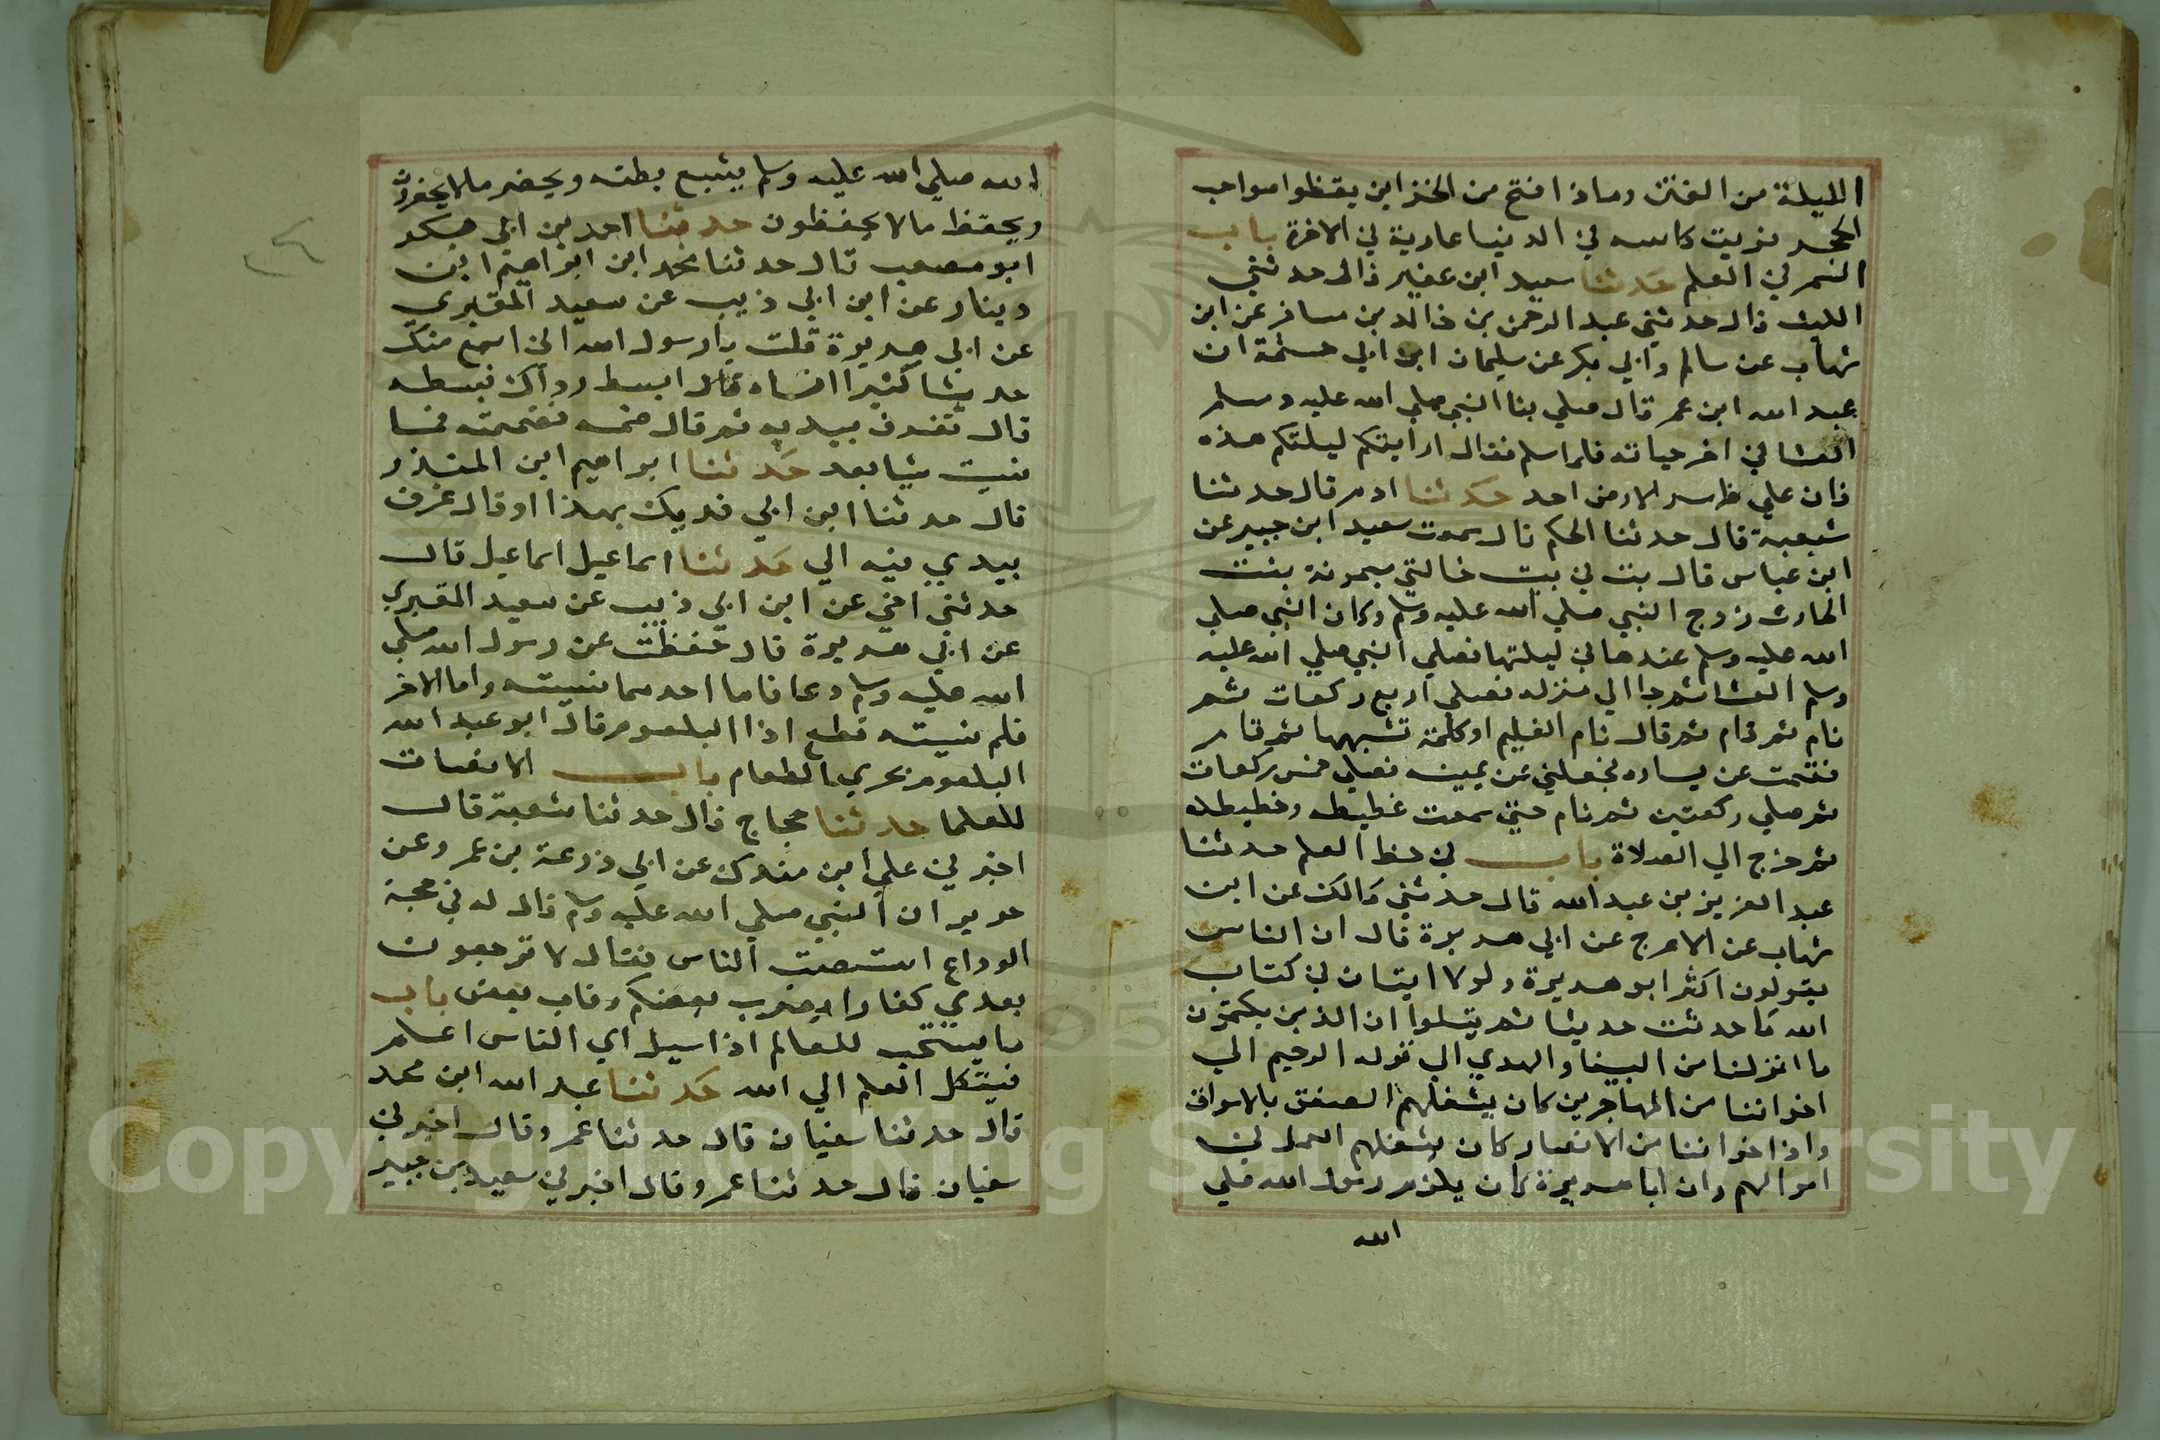 الليلة من الفتن وماذا فتح من الخزاين يقظوا صواحب
الحجر فربت كاسه في الدنيا عارية في الاخرة باب
السمر في العلم حدثنا سعيد ابن عفير قال حدثني
الليث قال حدثني عبد الرحمن بن خالد بن مسافر عن ابن
شهاب عن سالم وابي بكر عن سليمان ابن ابي حسثمة ان
عبد الله ابن عمر قال صلي بنا النبي صلي الله عليه وسلم
العشا في اخر حياته فلما سلم فقال ارايتكم ليلتكم هذه
فان علي ظهر الارض احد حدثنا ادم قال حدثنا
شعبة قال حدثنا الحكم قال سمعت سعيد ابن جبير عن
ابن عباس قال بت في بيت خالتي ميمونة بنت
الحارث زوج النبي صلي الله عليه وسلم وكان النبي صلي
الله عليه وسلم عندها في ليلتها فصلي النبي صلي الله عليه
وسلم العشا ثم جا الي منزله فصلي اربع ركعات ثم
نام ثم قام ثم قال نام الغليم او كلمة تشبهها ثم قام
فقمت عن يساره فجعلني عن يمينه فصلي خمس ركعات
ثم صلي ركعتين ثم نام حتي سمعت غطيطه وخطيطه
ثم خرج الي الصلاة باب في حفظ العلم حدثنا
عبد العزيز بن عبد الله قال حدثني مالك عن ابن
شهاب عن الاعرج عن ابي هريرة قال ان الناس
يقولون اكثر ابو هريرة ولولا ايتان في كتاب
الله ما حدثت حديثا ثم يتلوا ان الذين يكتمون
ما انزلنا من البينا والهدي الي قوله الرحيم الي
اخواننا من المهاجرين كان يشغلهم الصفق بالاسواق
واذا خواننا من الانصار كان يشغلهم العمل في
اموالهم وان ابا هريرة كان يلزم رسول الله صلي
الله
الله صلي الله عليه وسلم يشبع بطنه ويحضر ما لا يحضرون
ويحفظ ما لا يحفظون حدثنا احمد بن ابي بكر
ابو مصعب قال حدثنا محمد ابن ابراهيم ابن
دينار عن ابن ابي ذيب عن سعيد المقبري
عن ابي هريرة قلت يا رسول الله اني اسمع منك
حديثا كثيرا انساه قال ابسط رداك فبسطه
قال فغرف بيديه ثم قال ضمه فضممته فما
نسيت شيا بعد حدثنا ابراهيم ابن المنذر
قال حدثنا ابن ابي فديك بهذا او قال غرف
بيدي فيه الي حدثنا اسماعيل اسماعيل قال
حدثني اخي عن ابن ابي ذيب عن سعيد المقبري
عن ابي هريرة قال حفظت عن رسول الله صلي
الله عليه وسلم وعا فاما احدهما نسيته واما الاخر
فلم نسيته قطع اذا البلعوم قال ابو عبد الله
البلعوم مجري الطعام باب الانصات
للعلما حدثنا حجاج قال حدثنا شعبة قال
اخبرني علي ابن مندرك عن ابي زرعة بن عمرو عن
جرير ان النبي صلي الله عليه وسلم قال له في حجة
الوداع استنصت الناس فقال لا ترجعون
بعدي كفارا يضرب بعضكم رقاب بعض باب
ما يستحب للعالم اذا سيل اي الناس اعلم
فيتكل العلم الي الله حدثنا عبد الله ابن محمد
قال حدثنا سفيان قال حدثنا عمرو قال اخبرني
سفيان قال حدثنا عمرو قال اخبرني سعيد بن جبير
Copyright © King Saud University